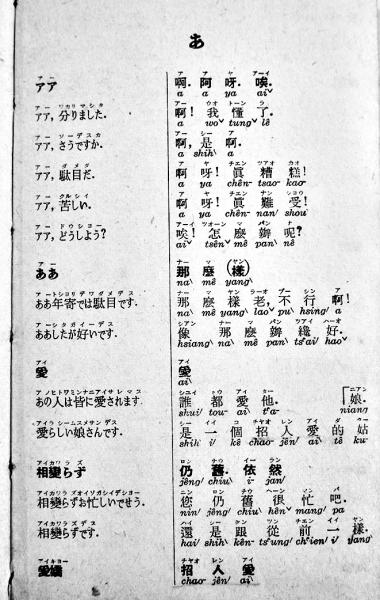 あ
アア　啊. 阿 呀. 唉.
a a ya ai
アア, 分りました.　啊! 我 懂 了.
a wo tung lê
アア, さうですか.　啊, 是 啊.
a shih a
アア, 駄目だ.　啊 呀! 眞 糟 糕!
a ya chên tsao kao
アア, 苦しい.　啊 呀! 眞 難 受!
a ya chên nan shou
アア, どうしよう?　唉! 怎 麽 辦 呢?
ai tsên mê pan nê
ああ　那 麽 (樣)
na mê yang
ああ年寄では駄目です.　那 麽 樣 老, 不 行 啊!
na mê yang lao pu hsing a
ああしたが好いです.　像 那 麽 辦 纔 好.
hsiang na mê pan ts'ai hao
愛　愛
ai
あの人は皆に愛されます.　誰 都 愛 他.　「娘.
shui tou ai t'a niang
愛らしい娘さんです.　是 一 個 招 人 愛 的 姑
shih i kê chao jên ai tê ku
相變らず　仍 舊. 依 然
jêng chiu i jan
相變らずお忙しいでせう.　您 仍 舊 很 忙 吧.
nin jêng chiu hên mang pa
相變らずです.　還 是 跟 從 前 一 樣.
hai shih kên ts'ung ch'ien i yang
愛嬌　招 人 愛
chao jên ai